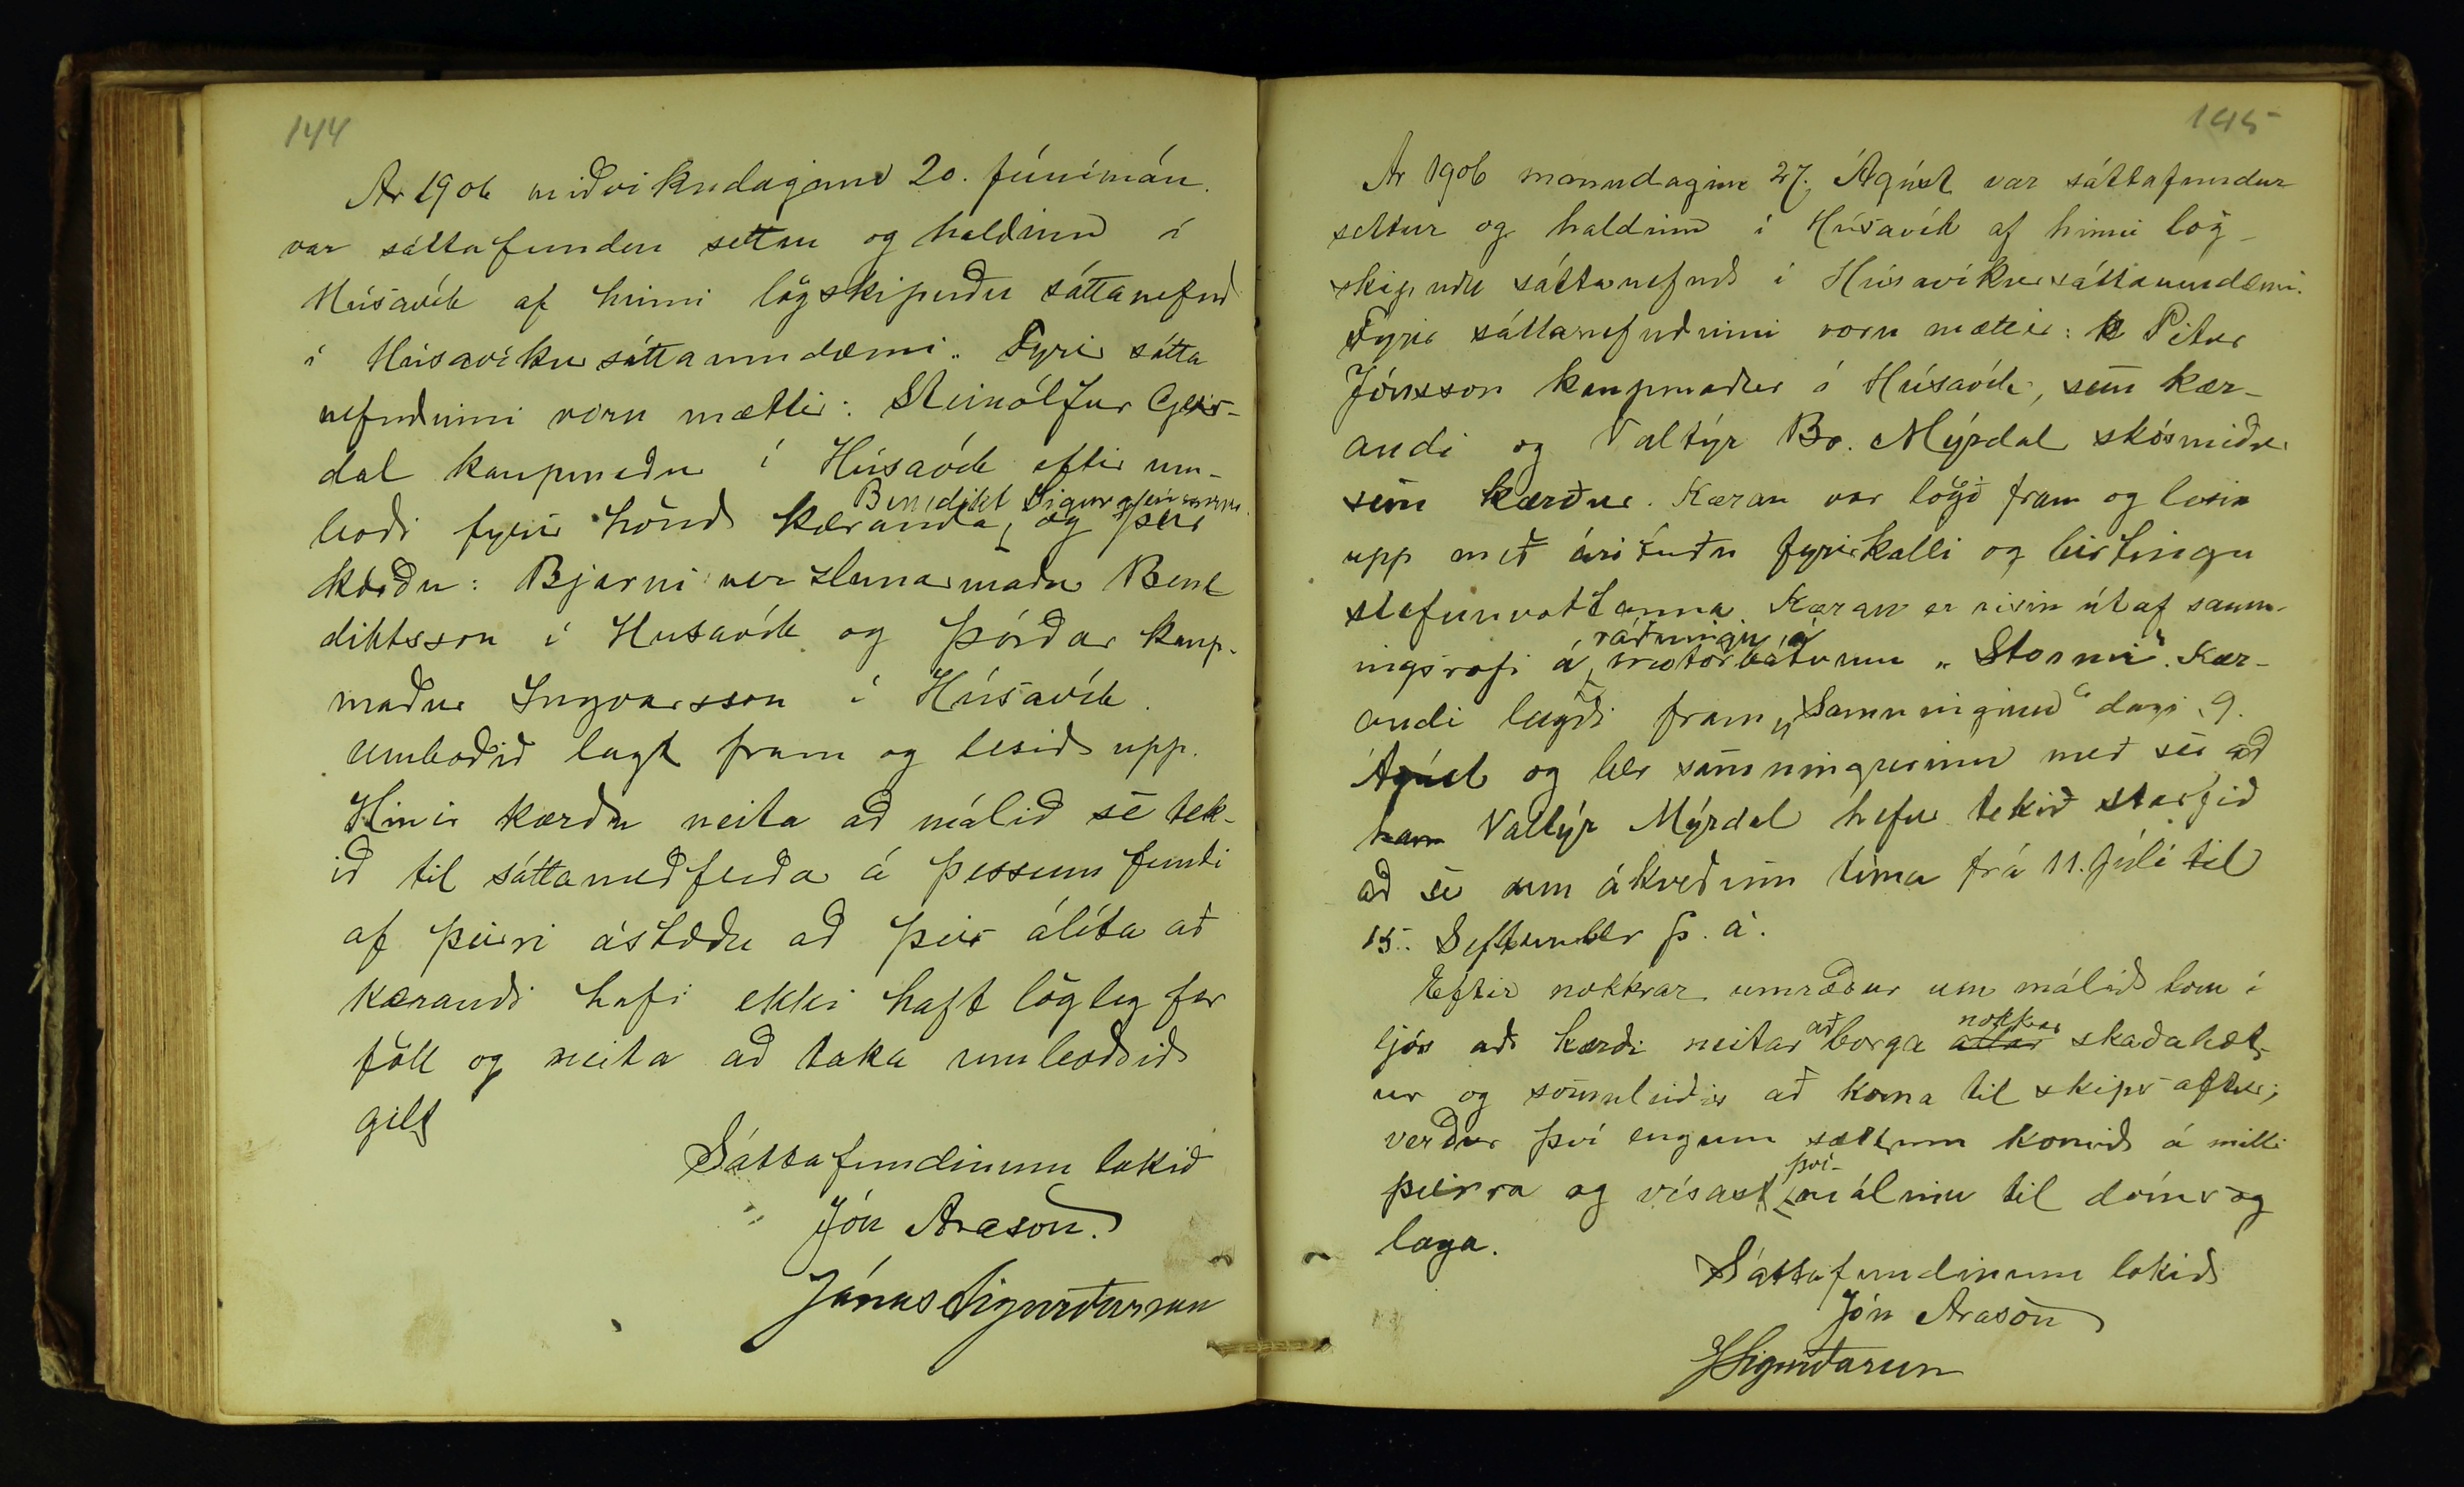 144
Ár 1906 miðvikudaginn 20. júnímán.
var sáttafundur settur og haldinn í
Húsavík af hinni lögskipuðu sáttanefnd
í Húsavíkur sáttaumdæmi. Fyrir sátta
nefndinni voru mættir: Steinólfur Geir-
dal kaupmaður í Húsavík eftir um-
Benedikt Sigurgeirssonar
boði fyrir hönd kæranda, og þeir
kærðu: Bjarni verslunarmaður Bene
diktsson í Husavík og Þórður kaup-
maður Ingvarsson í Húsavík.
Umboðið lagt fram og lesið upp.
Hinir kærðu neita að málið sé tek-
ið til sáttameðferða á þessum fundi
af þeirri ástæðu að þeir álíta að
kærandi hafi ekki haft lögleg for
föll og neita að taka umboðið
gilt
Sáttafundinum lokið
Jón Arason.
Jónas Sigurðursson
145
Ár 1906 mánudaginn 27. Ágúst var sáttafundur
settur og haldinn í Húsavík af hinni lög-
skipuðu sáttanefnd í Húsavíkursáttaumdæmi.
Fyrir sáttanefndinni voru mættir: k Pétur
Jónsson kaupmaður í Húsavík, sem kær-
andi og Valtýr Br. Mýrdal skósmiður
sem kærður. Kæran var lögð fram og lesin
upp með árituðu fyrirkalli og birtingu
stefnuvottanna. Kæran er risin útaf samn-
ráðningu á
ingsrofi á mótorbátnum „Stormi“. Kær-
andi lagði fram „Samninginn“ dags. 9.
Ágúst og ber samningurinn með sér að
hann Valtýr Mýrdal hefur tekið starfið
að sér um ákveðinn tíma frá 11. Júlí til
15. September þ. á.
Eftir nokkrar umræður um málið kom í
að nokkrar
ljós að kærði neitar borga allar skaðabæt-
ur og sömuleiðis að koma til skips aftur;
verður því engum sættum komið á milli
því-
þeirra og vísast málinu til dóms og
laga.
Sáttafundinum lokið
Jón Arason
JSigurðarson